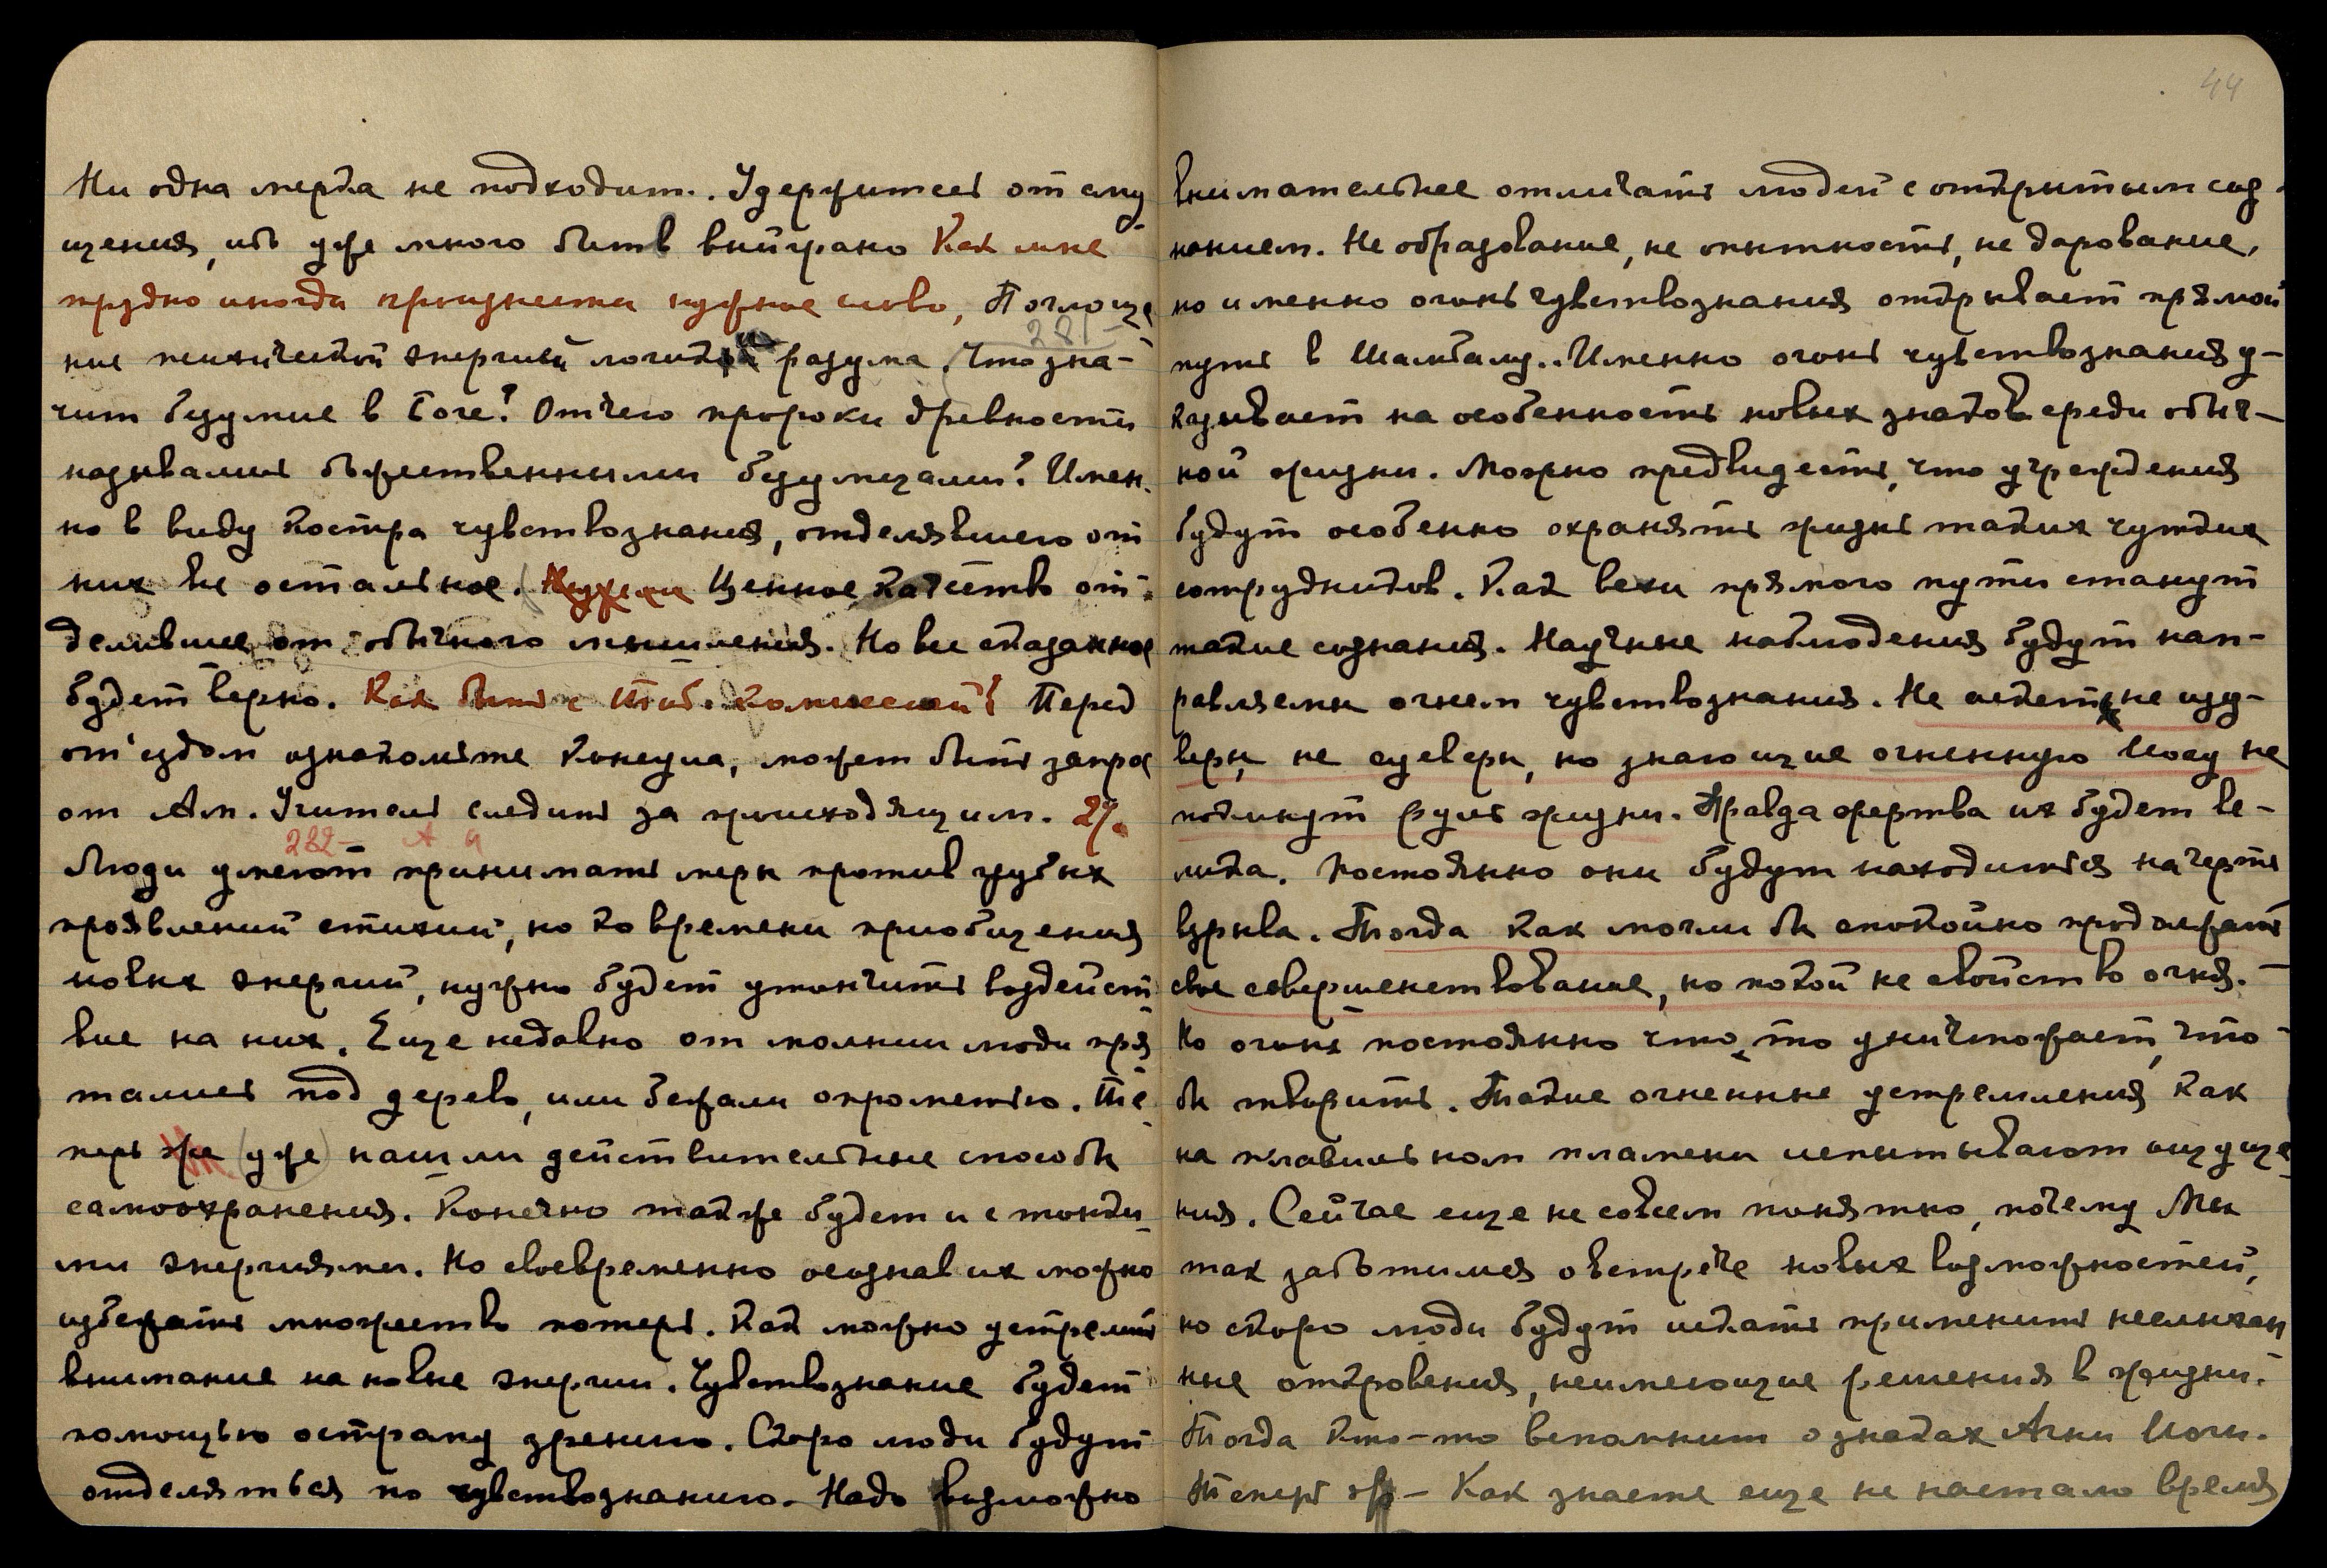 Ни одна мерка не подходит. Удержитесь от сму
щения, ибо уже много битв выиграно Как мне
трудно иногда произнести нужное слово, Поглоще
281 —
ние психической энергией логики разума. Что зна-
чит безумие в Боге? Отчего пророки древности
назывались божественными безумцами? Имен.
но в виду костра чувствознания, отделявшего от
них все остальное. Ценное качество от-
делившее от обычного мышления. Но все сказанное
будет верно. Как быть с Перед
от'ездом ознакомьте Консула, может быть запрос
от Ам. Учитель следит за происходящим. 2%
282 — А Й
Люди умеют принимать меры против грубых
проявлений стихий, но ко времени приобщения
новых энергий, нужно будет утончить воздейст
вие на них. Еще недавно от молнии люди пря
тались под дерево, или бежали опрометью. Те
перь же (уже) нашли действительные способы
самоохранения. Конечно также будет и с тонки
ми энергиями. Но своевременно осознав их можно
избежать множество потерь. Как можно устремить
внимание на новые энергии. Чувствознание будет
помощью острому зрению. Скоро люди будут
отделяться по чувствознанию. Надо возможно
44
внимательнее отличать людей с открытым соз
нанием. Не образование, не опытность, не дарование,
но именно огонь чувствознания открывает прямой
путь в Шамбалу.. Именно огонь чувствознания у-
казывает на особенность новых знаков среди обыч-
ной жизни. Можно предвидеть, что учреждения
будут особенно охранять жизнь таких чутких
сотрудников. Как вехи прямого пути станут
такие сознания. Научные наблюдения будут нап-
равляемы огнем чувствознания. Не аскеты не изу-
веры, не суеверы, но знающие огненную Иогу не
покинут руль жизни. Правда жертва их будет ве-
лика. Постоянно они будут находиться на черте
взрыва. Тогда как могли бы спокойно продолжать
свое совершенствование, но покой не свойство огня.
Но огонь постоянно что-то уничтожает, что
бы творить. Такие огненные устремления как
на плавильном пламени испытывают ощуще
ния. Сейчас еще не совсем понятно, почему Мы
так заботимся о встрече новых возможностей,
но скоро люди будут искать применить неслыхан
ные откровения, неимеющие решения в жизни.
Тогда кто-то вспомнит о знаках Агни Иоги.
Теперь же — Как знаете еще не настало время